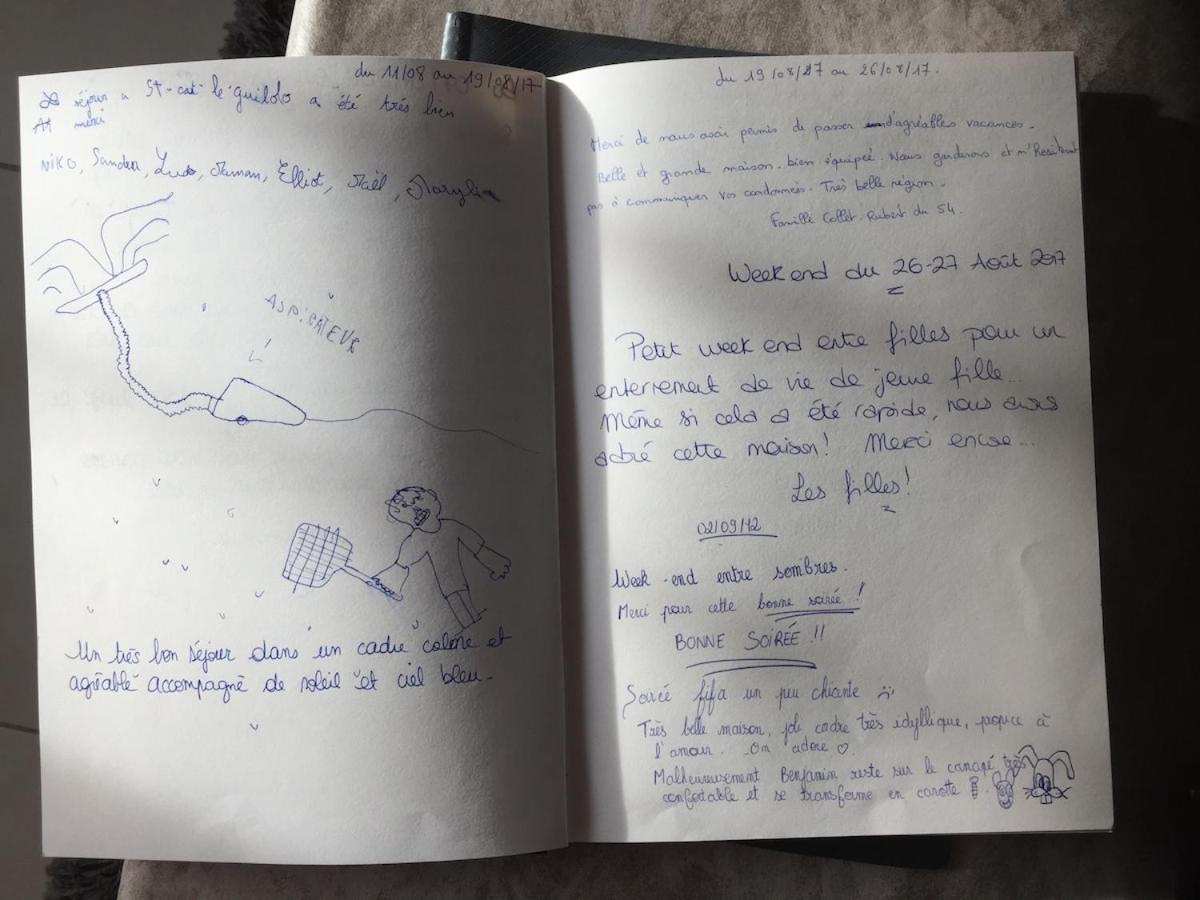 du 11/08 au 19/08/17
séjour a St-cat-le-guildo a été très bien
merci
NIKO, Sandra, Ludo, Elliot, Maël, Maryline
ASPIRATEUR
Un très bon séjour dans un cadre calme et
agréable accompagné de soleil et ciel bleu.
du 19/08/17 au 26/08/17.
Merci de nous avoir permis de passer d'agréables vacances.
Belle et grande maison. bien équipée. Nous garderons et
pas à communiquer vos coordonnées. Très belle région.
Famille Collet. du 54.
Week end du 26-27 Août 2017
Petit week end entre filles pour un
enterrement de vie de jeune fille...
Même si cela a été rapide, nous avons
adoré cette maison! Merci encore...
Les filles!
02/09/
Week-end entre sombres.
Merci pour cette bonne soirée!
BONNE SOIRÉE!!
Soirée fifa un peu chiante
Très belle maison, joli cadre très idyllique, propice à
l'amour. On adore ♡
Malheureusement Benjamin reste sur le canapé très
confortable et se transforme en carotte !